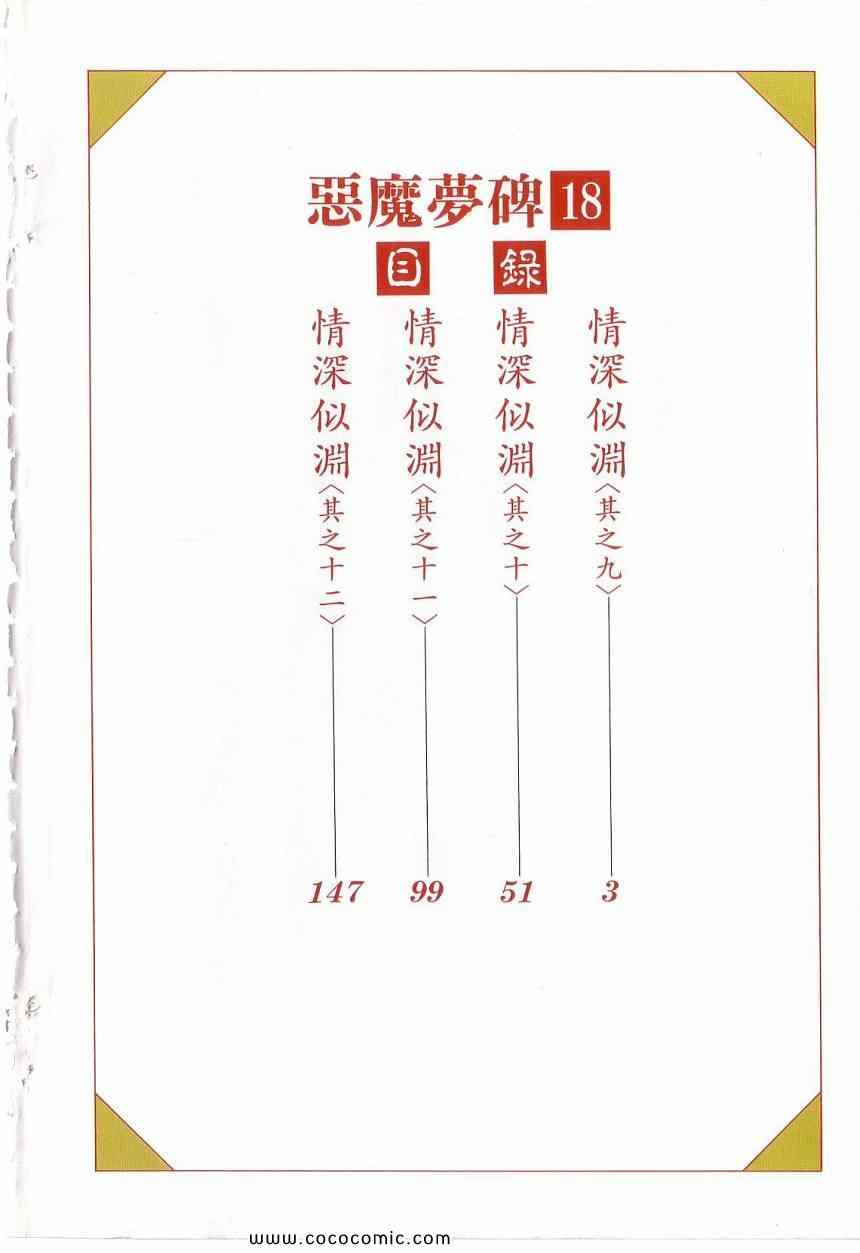 惡魔夢碑 18
目 録
情深似淵〈其之九〉 3
情深似淵〈其之十〉 51
情深似淵〈其之十一〉 99
情深似淵〈其之十二〉 147
www.cococomic.com